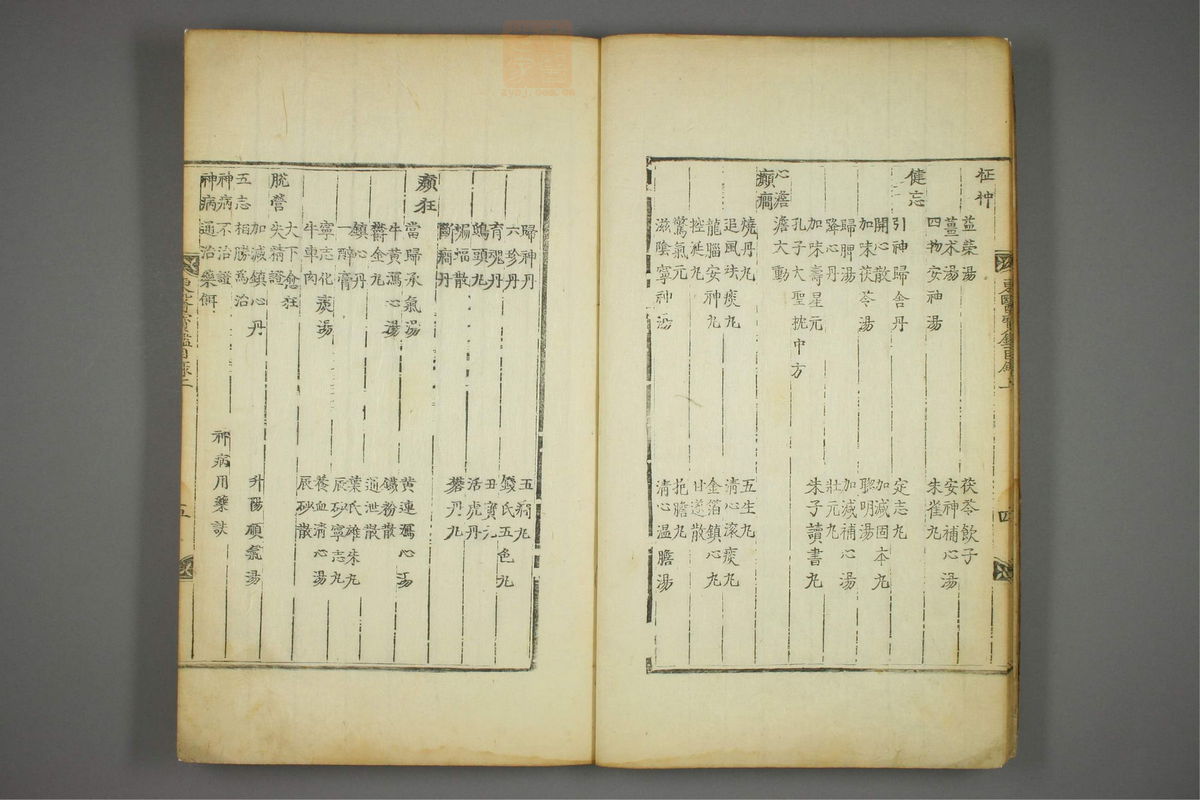 怔忡
益榮湯 茯苓飲子
薑朮湯 安神補心湯
四物安神湯 朱雀丸
健忘
引神歸舍丹 定志丸
開心散 加減固本丸
加味茯苓湯 聰明湯
歸脾湯 加減補心湯
降心丹 壯元丸
加味壽星元 朱子讀書丸
孔子大聖枕中方
心澹 澹大動
癲癇
燒丹丸 五生丸
追風祛痰丸 清心滾痰丸
龍腦安神丸 金箔鎮心丸
控涎丸 甘遂散
驚氣元 抱膽丸
滋陰寧神湯 清心温膽湯
東醫寶鑑目錄 四
歸神丹 五癎丸
六珍丹 錢氏五色丸
育魂丹 丑寶元
鴟頭丸 活虎丹
蝙蝠散 礬丹丸
斷癎丹
癲狂
當歸承氣湯 黃連瀉心湯
牛黃瀉心湯 鐵粉散
鬱金丸 通泄散
鎮心丹 葉氏雄朱丸
一醉膏 辰砂寧志丸
寧志化痰湯 養血清心湯
牛車肉 辰砂散
大下愈狂
脫營 失精證
加減鎮心丹 升陽順氣湯
五志 相勝爲治
神病 不治證 神病用藥訣
神病 通治藥餌
東醫寶鑑目錄 五